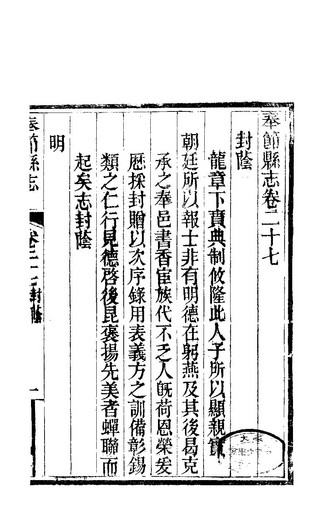 奉節縣志卷二十七
封蔭
龍章下賁典制攸隆此人子所以顯親實
朝廷所以報士非有明德在躬燕及其後曷克
承之奉邑書香宦族代不乏人旣荷恩榮爰
歷採封贈以次序錄用表義方之訓備彰錫
類之仁行見德啓後昆褒揚先美者蟬聯而
起矣志封蔭
明
奉節縣志
卷二十七封蔭
一